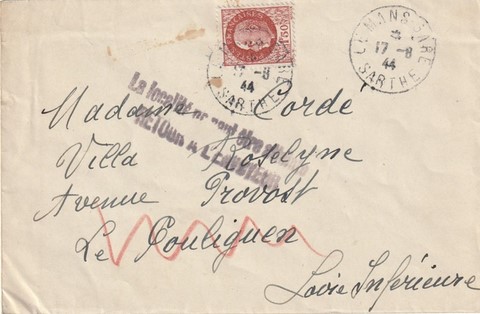 FRANÇAISES
1F50
LE MANS GARE
17 -8
44
SARTHE
LE MANS GARE
17 -8
44
SARTHE
La localité ne peut être
RETOUR A L'ENVOYEUR
Madame Corde
Villa Roselyne
Avenue Provost
Le Pouliguen
Loire Inférieure